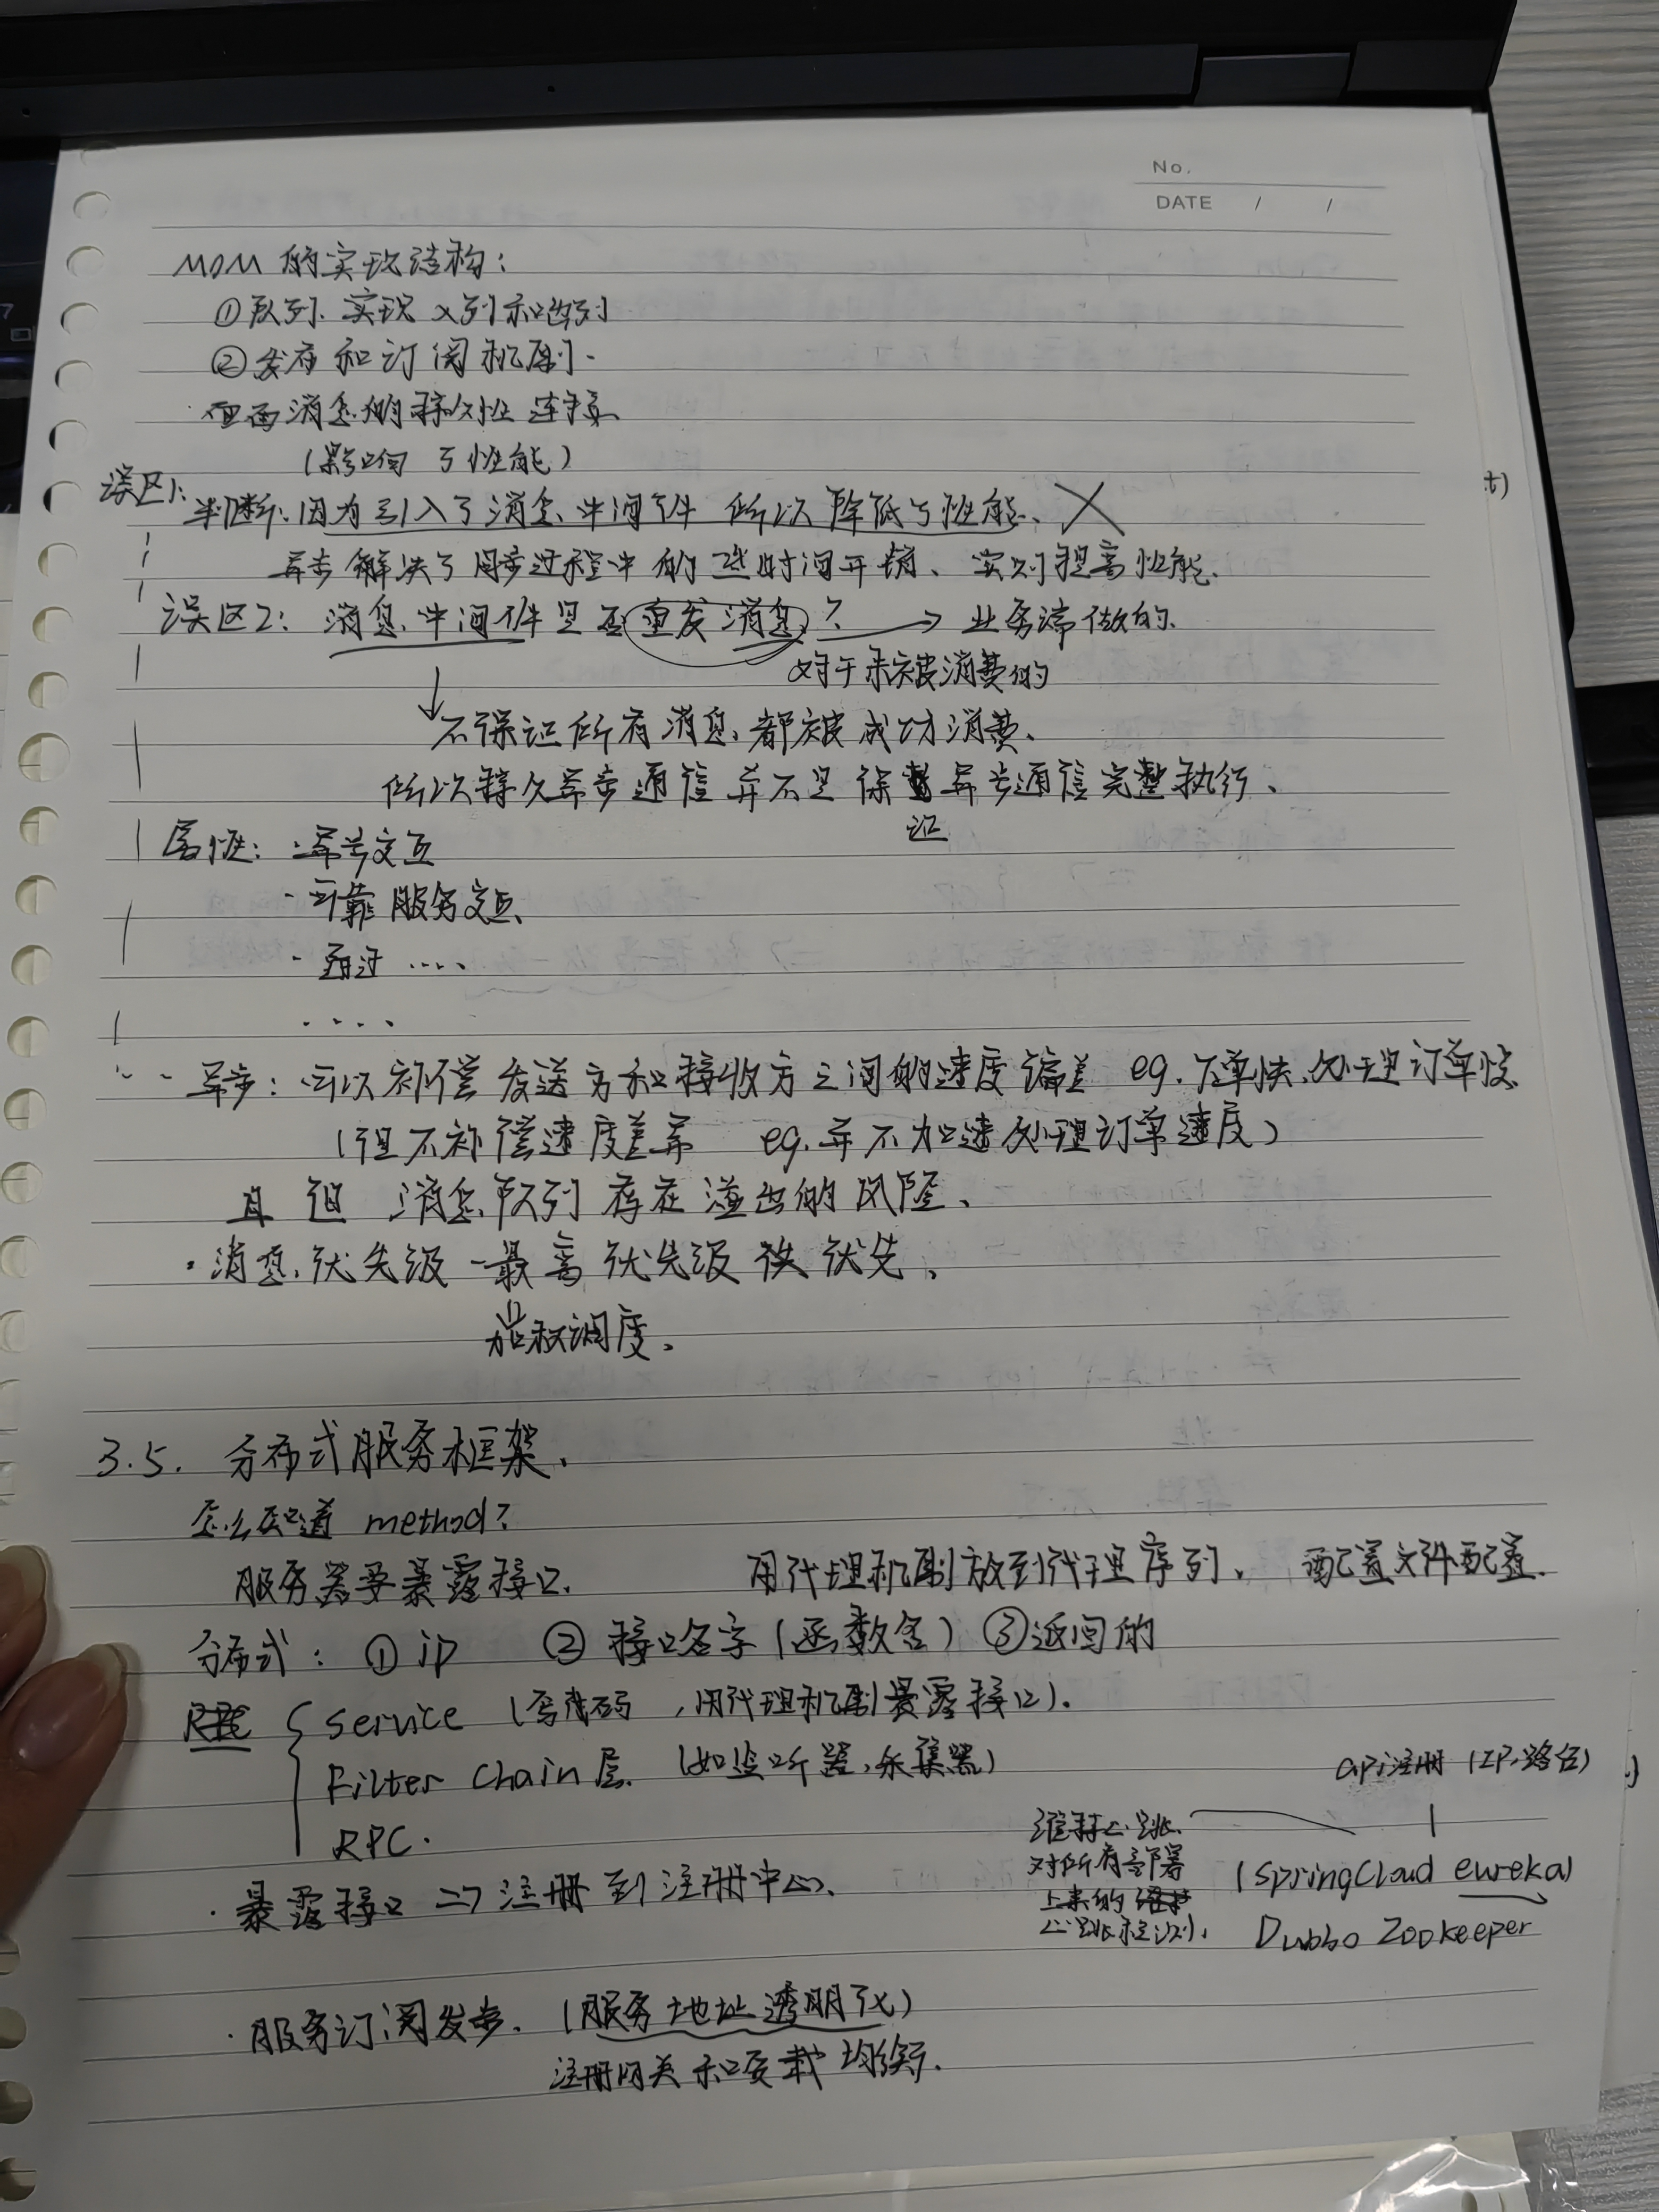 No.
DATE / /
MOM 的实现结构:
①队列. 实现 入列和出列
②发布和订阅机制.
但需消息的持久性 连接、
(影响了性能)
误区1:
判断: 因为引入了消息中间件 所以降低了性能、 ×
异步解决了同步过程中的 时间开销、实则提高性能.
误区2: 消息中间件是否重发消息? → 业务端做的.
对于未被消费的
↓
不保证所有消息都被成功消费、
所以持久异步通信并不是保证异步通信完整执行、
属性: · 异步交互
· 可靠服务交互、
· 通过 ....
....
· 异步: 可以补偿发送方和接收方之间的速度偏差 eg. 下单快、处理订单慢
(但不补偿速度差异 eg. 并不加速处理订单速度)
且 但 消息队列存在溢出的风险、
· 消息优先级 — 最高优先级 优先、
↓
加权调度.
3.5. 分布式服务框架.
怎么知道 method?
服务器要暴露接口. 用代理机制放到代理序列. 配置文件配置.
分布式: ① ip ② 接口名字 (函数名) ③返回的
Service (写代码, 用代理机制暴露接口).
Filter Chain层. (如监听器、采集器)
api注册 (IP、路台)
RPC.
维持心跳.
对所有部署
上来的
心跳检测.
(SpringCloud eureka)
Dubbo Zookeeper
· 暴露接口 => 注册到注册中心.
· 服务订阅发布. (服务地址透明化)
注册网关和负载均衡.